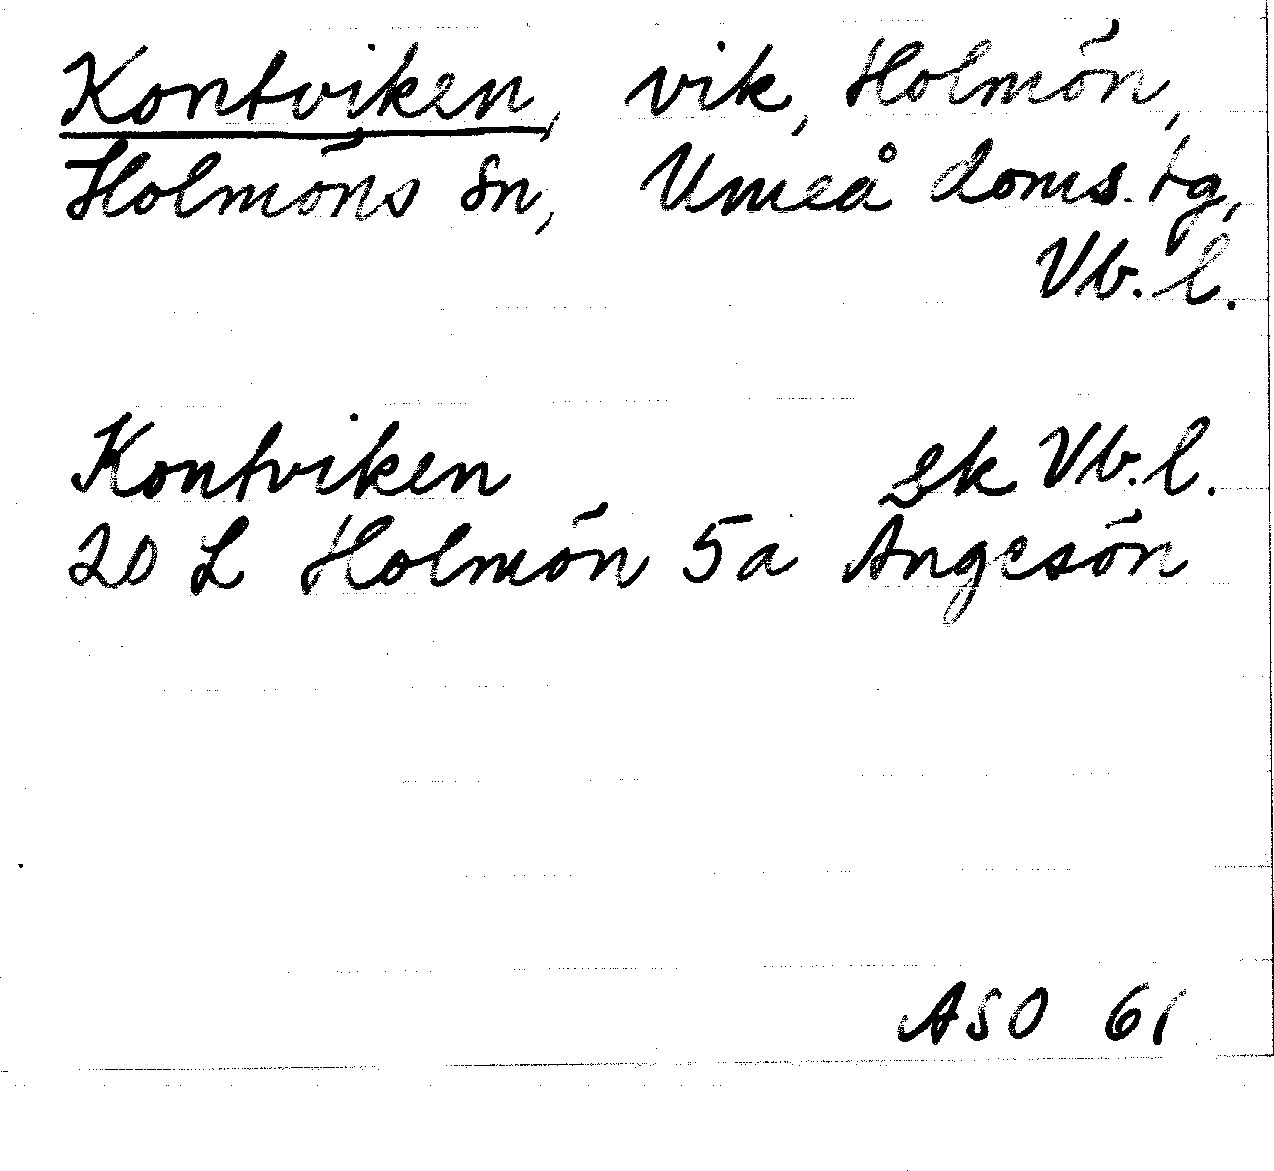 Kontviken, vik, Holmön,
Holmöns sn, Umeå doms. tg,
Vb. l.
Kontviken ek Vb. l.
20 L Holmön 5a Ängesön
ASO 61